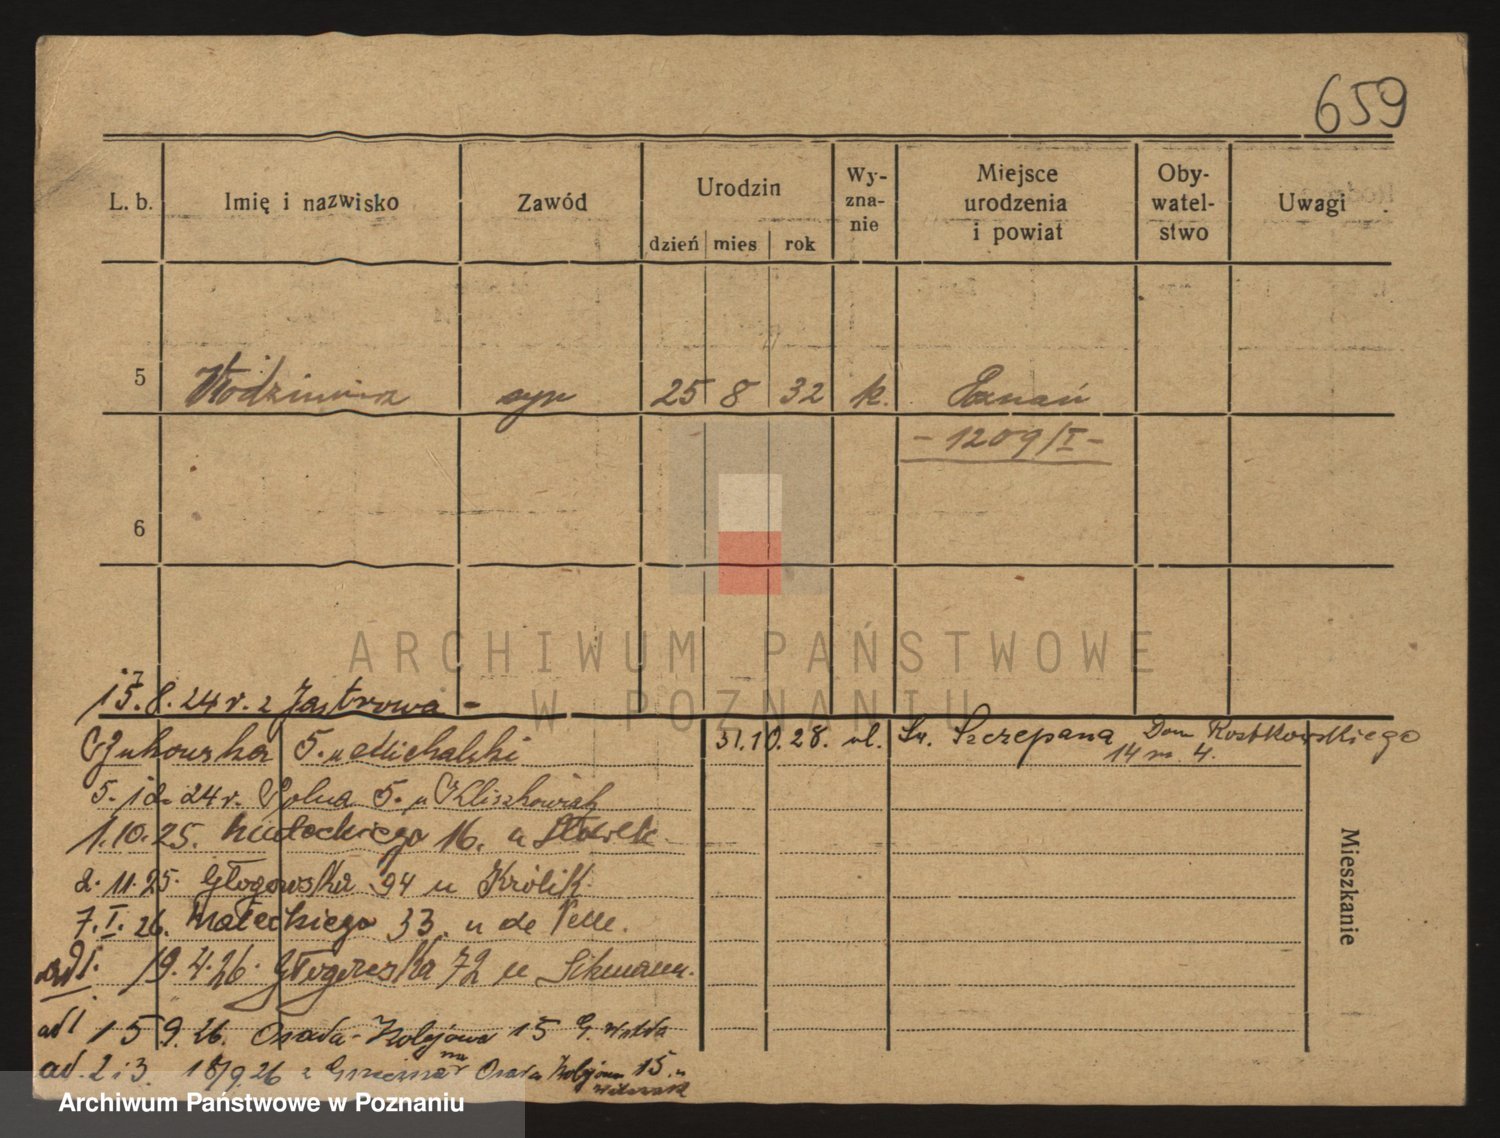 659
L. b. Imię i nazwisko Zawód Urodzin dzień mies rok Wy-zna-nie Miejsce urodzenia i powiat Oby-watel-stwo Uwagi
5 Włodzimierz syn 25 8 32 k. Poznań
- 1209/I -
6
ARCHIWUM PAŃSTWOWE
W POZNANIU
15.8.24 r. z Jastrowa -
Żukowska 5. u Michalski
31.10.28. ul. Św. Szczepana Dom Rostkowskiego
14 m. 4.
5.12.24 r. Polna 5. u
1.10.25. 16. u
2.11.25. Głogowska 94 u Królik.
7.I.26. Małeckiego 33. u de
ad 1. 19.4.26. Głogowska 72 u
ad 1 15 9.26. Osada-Kolejowa 15 G.
ad. 2 i 3. 15/9.26 z na Osada Kolejowa 15. u
Mieszkanie
Archiwum Państwowe w Poznaniu